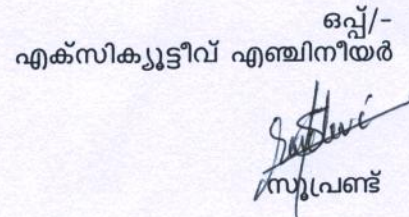 ഒപ്പ്/-
എക്സിക്യൂട്ടീവ് എഞ്ചിനീയർ
സൂപ്രണ്ട്